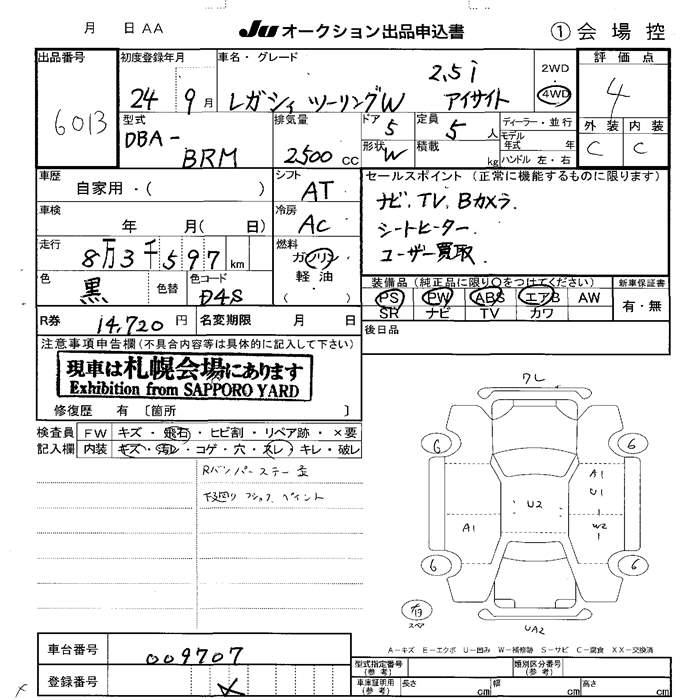 月 日 AA
JU オークション出品申込書
① 会場控
出品番号
6013
初度登録年月
24 9月
車名・グレード
レガシィ ツーリングW
2.5i アイサイト
2WD
4WD
評価点
4
外装 内装
C C
型式
DBA-
BRM
排気量
2500 CC
ドア 5
形状 W
定員 5 人
積載 kg
ディーラー・並行
モデル年式 年
ハンドル 左・右
車歴
自家用・( )
シフト
AT
車検
年 月( 日)
冷房
AC
走行
8万3千597 km
燃料
ガソリン
軽油
( )
色
黒
色替
色コード
D4S
セールスポイント (正常に機能するものに限ります)
ナビ. TV. Bカメラ.
シートヒーター.
ユーザー買取.
装備品(純正品に限り○をつけてください)
PS PW ABS エアB AW
SR ナビ TV カワ
新車保証書
有・無
R券 14,720 円
名変期限 月 日
後日品
注意事項申告欄(不具合内容等は具体的に記入して下さい)
現車は札幌会場にあります
Exhibition from SAPPORO YARD
修復歴 有 〔箇所 〕
検査員記入欄
FW キズ・飛石・ヒビ割・リペア跡・×要
内装 キズ・汚レ・コゲ・穴・スレ・キレ・破レ
Rバンパーステー
下廻り ペイント
ワレ
6 6
A1
U1
U2
A1
W2
6 6
有
スペア
UA2
A-キズ E-エクボ U-凹み W-補修跡 S-サビ C-腐食 XX-交換済
車台番号
009707
登録番号
型式指定番号(参考)
類別区分番号(参考)
車庫証明用(参考)
長さ cm
幅 cm
高さ cm